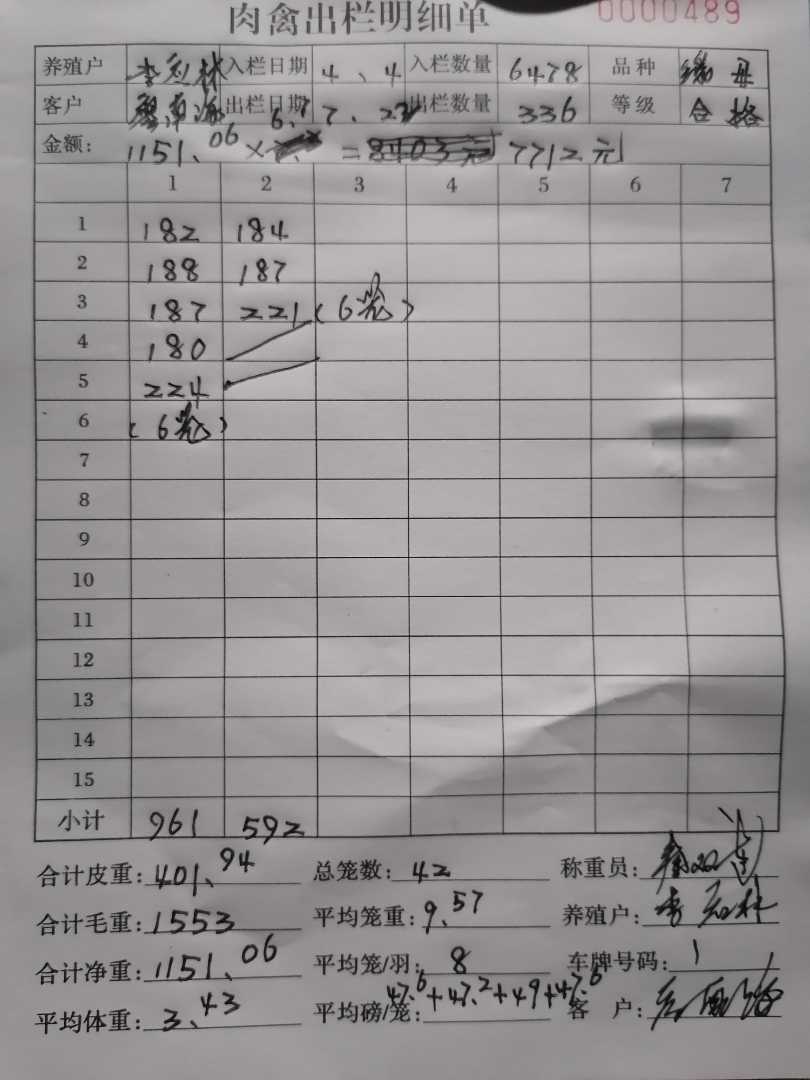 肉禽出栏明细单 0000489
养殖户 李 林 入栏日期 4、4 入栏数量 6478 品种 母
客户 出栏日期 7、22 出栏数量 336 等级 合格
金额: 1151、06 × 6.7 = 7712元
1 2 3 4 5 6 7
1 182 184
2 188 187
3 187 221 (6笼)
4 180
5 224
6 (6笼)
7
8
9
10
11
12
13
14
15
小计 961 592
合计皮重: 401、94 总笼数: 42 称重员:
合计毛重: 1553 平均笼重: 9、57 养殖户: 李 林
合计净重: 1151、06 平均笼/羽: 8 车牌号码: 1
平均体重: 3、43 平均磅/笼: 47.6+47.2+49+47.6 客 户: